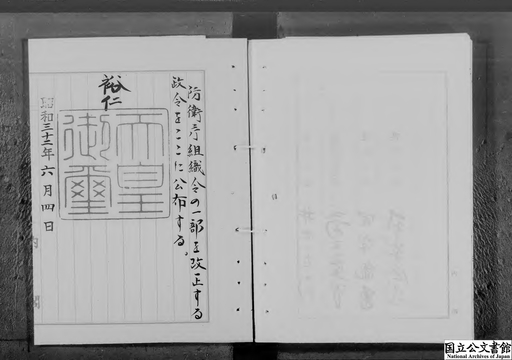 防衛庁組織令の一部を改正する
政令をここに公布する。
裕仁
天皇
御璽
昭和三十三年六月四日
内閣
国立公文書館
National Archives of Japan